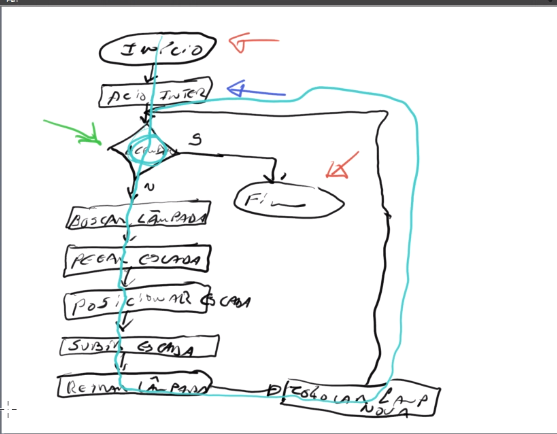 INÍCIO
ACIO INTER
S
N
Fim
BUSCAR LÂMPADA
PEGAR ESCADA
POSICIONAR ESCADA
SUBIR ESCADA
RETIRAR LÂMPADA
COLOCAR LAMP
NOVA